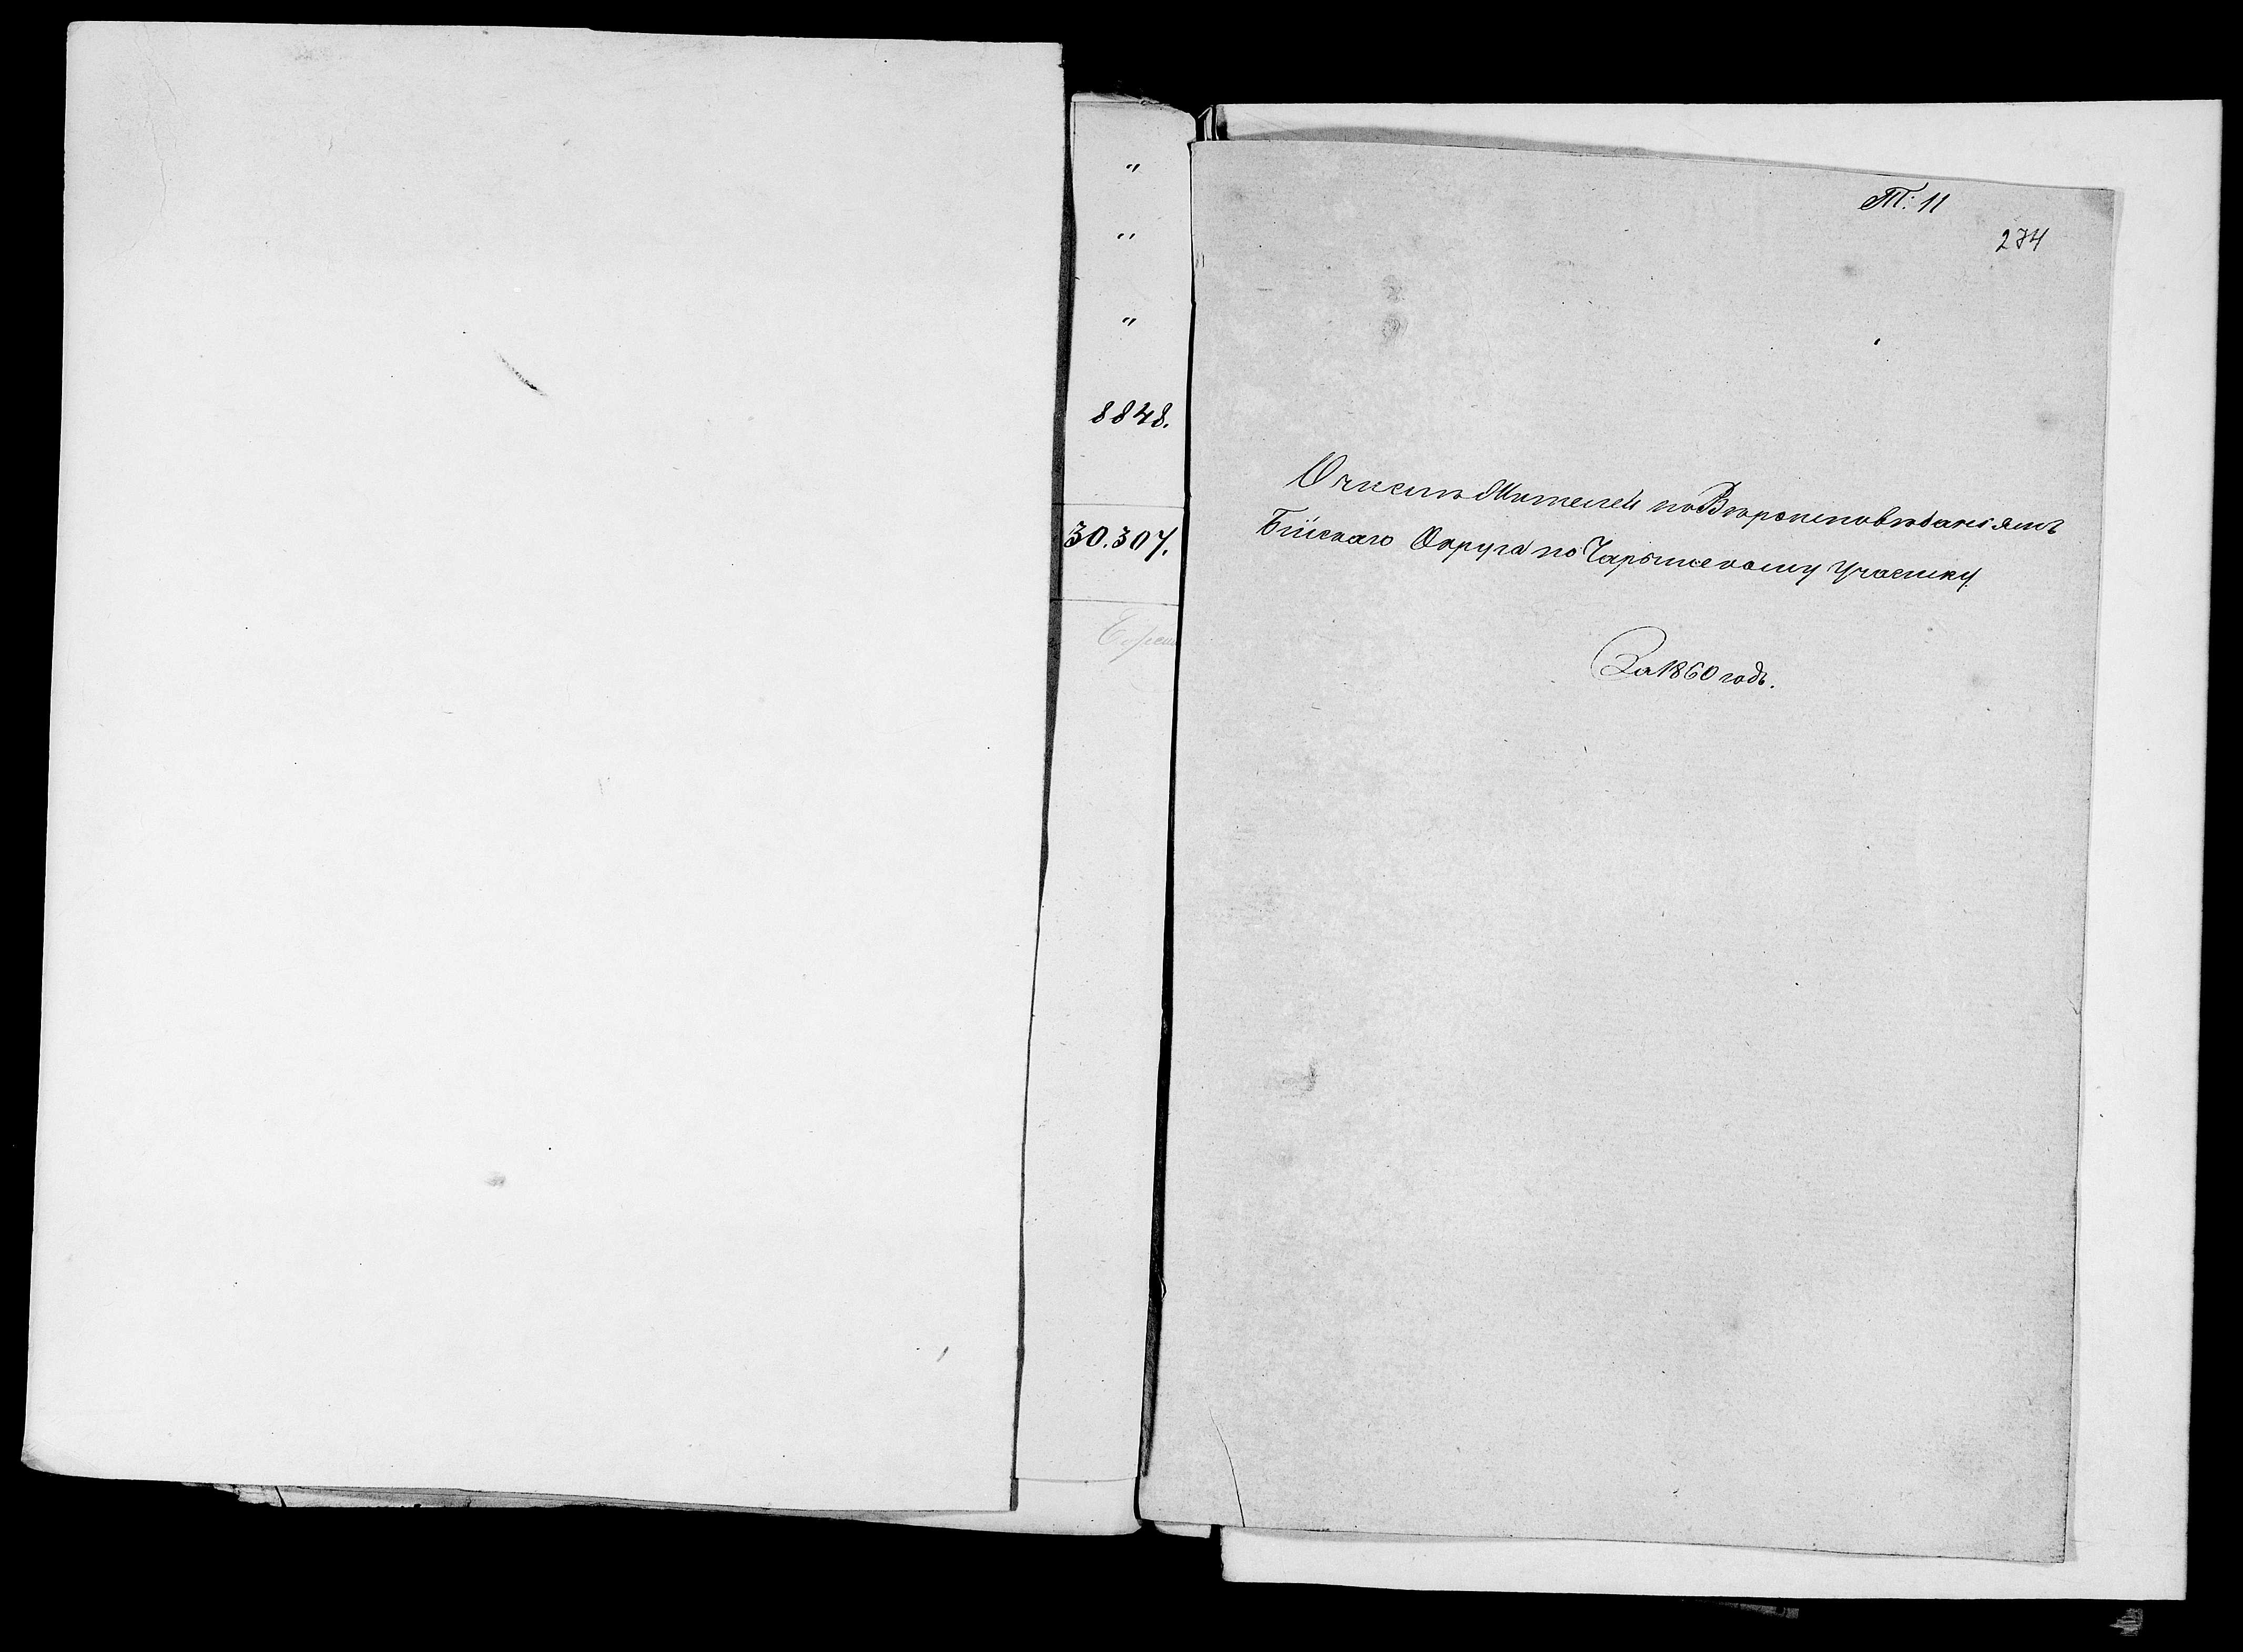 "
"
"
8848.
30.307.
Т: 11
274
О числѣ Жителей по Вѣроисповѣданіямъ
Бійскаго Округа по Чарышскому участку.
За 1860 годъ.